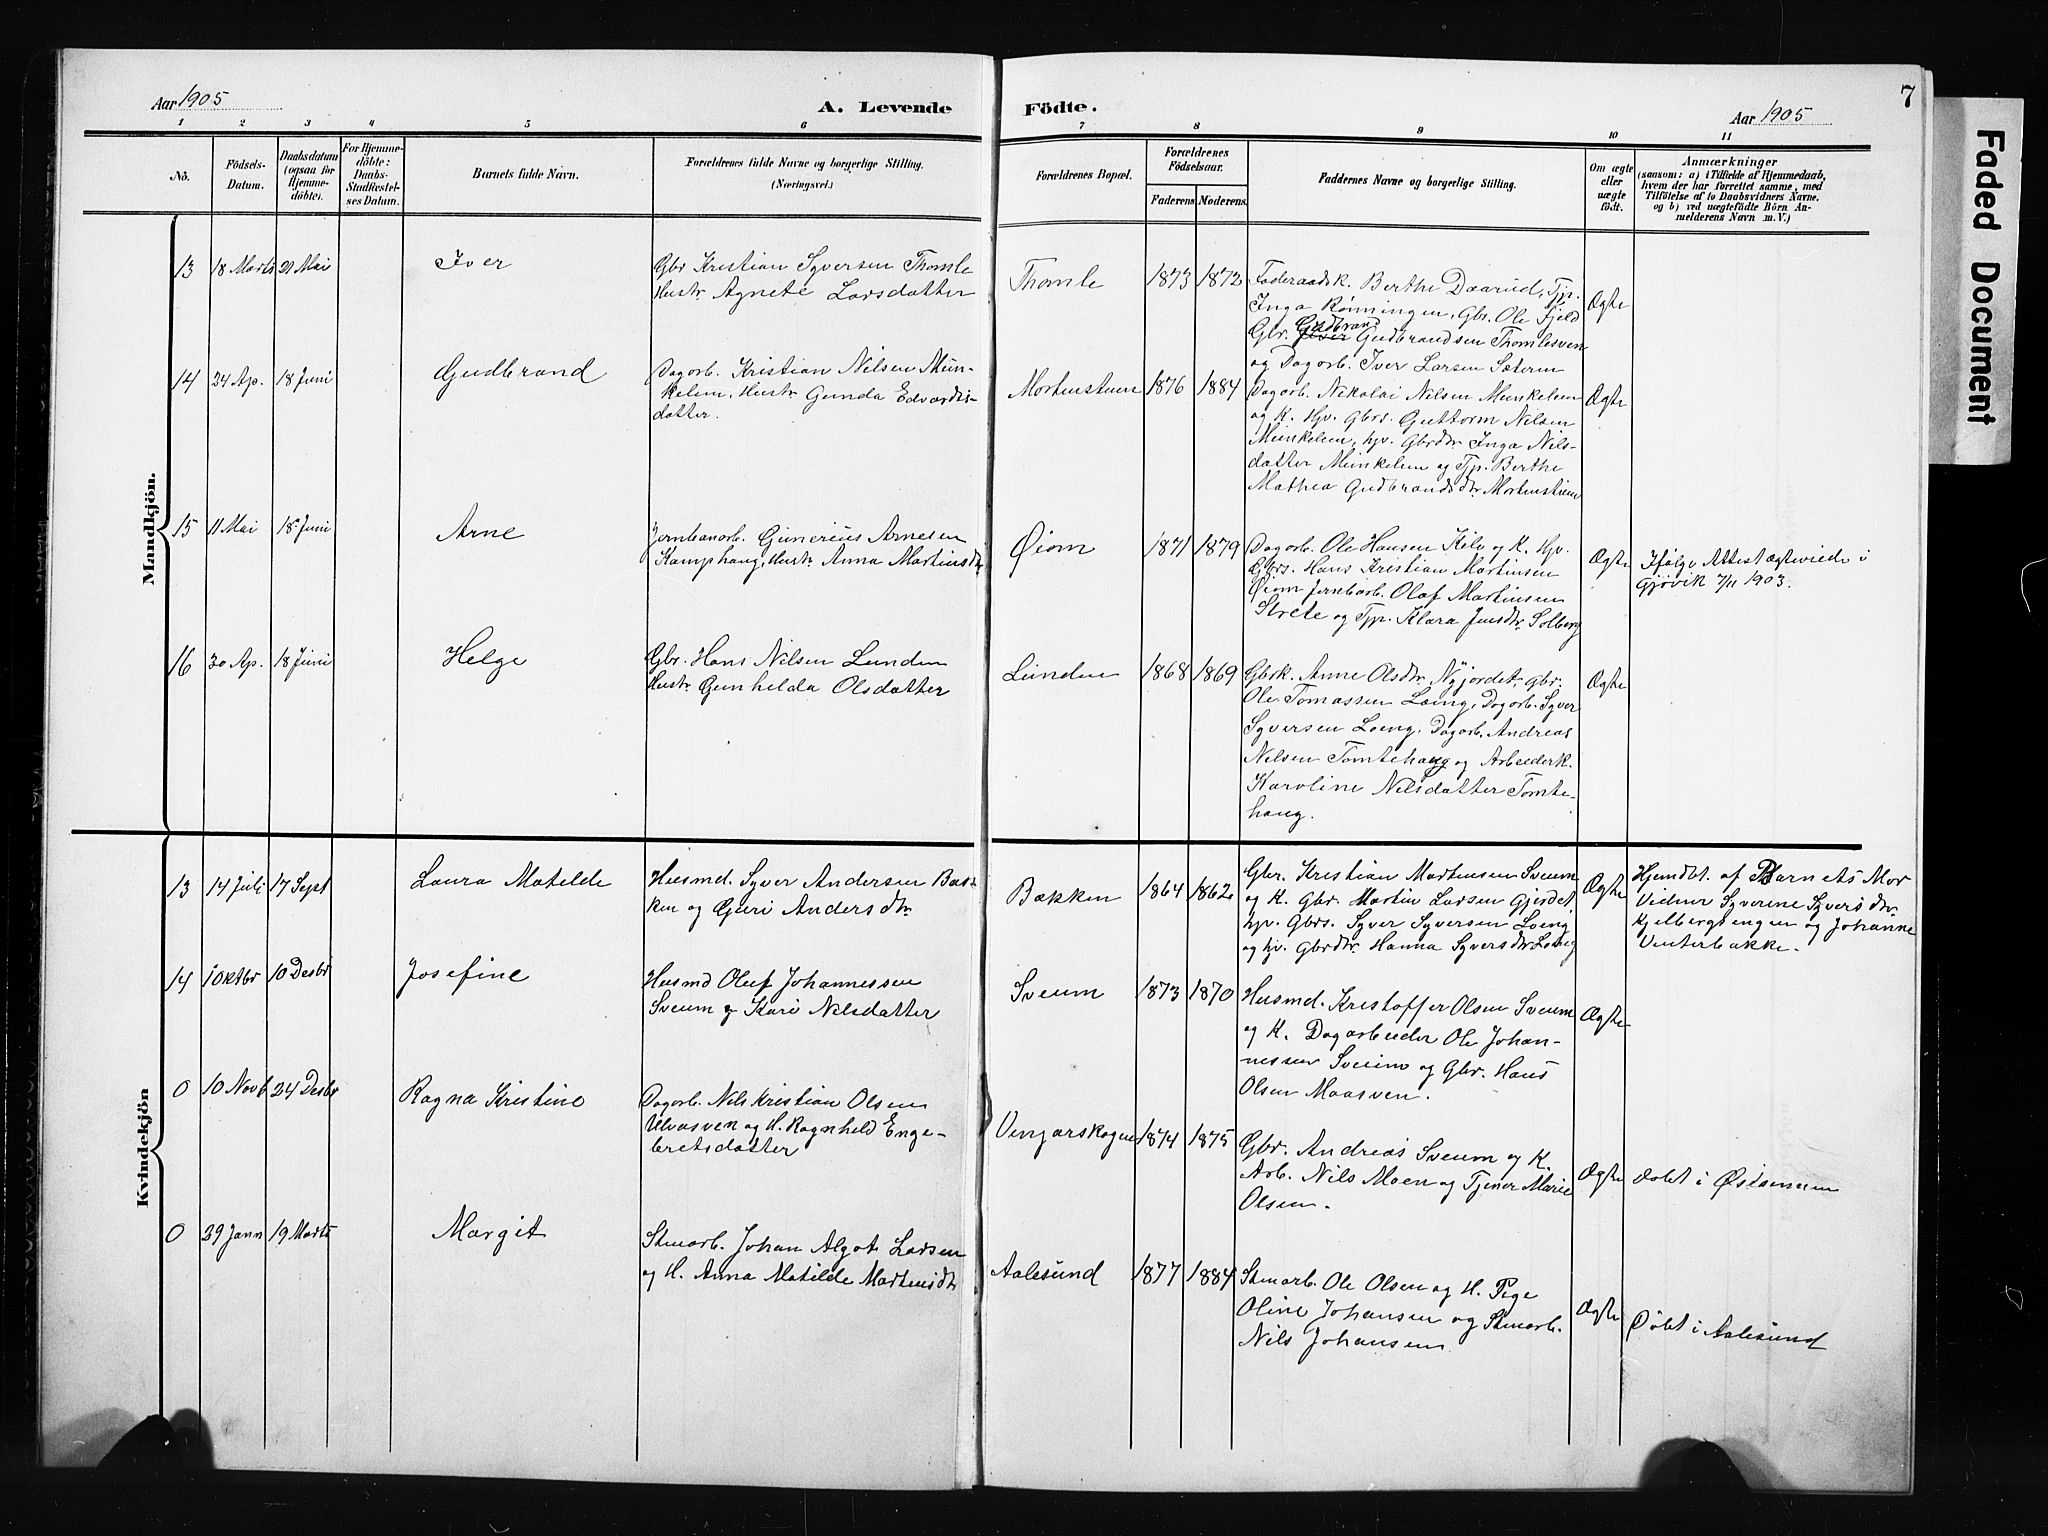 Aar 1905
A. Levende
Födte.
Aar 1905
7
Faded Document
1 2 3 4 5 6 7 8 9 10 11
No.
Födsels-
Datum.
Daabsdatum
(ogsaa for
Hjemme-
döbte).
For Hjemme-
döbte:
Daabs-
Stadfæstel-
ses Datum.
Barnets fulde Navn.
Forældrenes fulde Navne og borgerlige Stilling.
(Næringsvei.)
Forældrenes Bopæl.
Forældrenes
Födselsaar.
Faderens Moderens
Faddernes Navne og borgerlige Stilling.
Om ægte
eller
uægte
födt.
Anmærkninger
(saasom: a) i Tilfælde af Hjemmedaab,
hvem der har forrettet samme, med
Tilföielse af to Daabsvidners Navne.
og b) ved uægtefödte Börn An-
melderens Navn m. V.)
Mandkjön.
13
18 Marts
21 Mai
Iver
Gbr Kristian Syversen Thomle
Hustr Agnete Larsdatter
Thomle
1873 1872
Föderaadsk. Berthe Daarud, Tjp.
Inga Rønningen, Gbr. Ole Fjeld
Gudbrand
Gbr. Iver Gudbrandsen Thomlesven
og Dagarb. Iver Larsen Sæteren
Ægte
14
24 Ap.
18 Juni
Gudbrand
Dagarb. Kristian Nilsen Mun-
kelien, Hustr Gunda Edvards-
datter.
Mortenstuen
1876 1884
Dagarb. Nikolai Nilsen Munkelien
og K. Hjv. Gbrs. Guttorm Nilsen
Munkelien, hjv. Gbrdtr Inga Nils-
datter Munkelien og Tjp. Berthe
Mathea Gudbrandsdtr Mortenstuen
Ægte
15
11 Mai
18 Juni
Arne
Jernbanarb. Gunerius Arnesen
Kamphaug, Hustr. Anna Martinsdtr
Øiom
1871 1879
Dagarb. Ole Hansen Kilo og K. Hjv.
Gbrs. Hans Kristian Martinsen
Øiom Jernbarb. Olaf Martinsen
Strete og Tjp. Klara Jensdtr. Solberg
Ægte
Ifölge Attest ægteviede i
Gjøvik 7/11 1903.
16
30 Ap.
18 Juni
Helge
Gbr. Hans Nilsen Lunden
Hustr Gunhilda Olsdatter
Lunden
1868 1869
Gbrk. Anne Olsdtr. Nyjordet, Gbr.
Ole Tomassen Loeng, Dagarb. Syver
Syversen Loeng, Dagarb. Andreas
Nilsen Tomtehaug og Arbeiderk.
Karoline Nilsdatter Tomte-
haug.
Ægte
Kvindekjön
13
14 Juli
17 Sept
Laura Matilde
Husmd. Syver Andersen Bæk-
ken og Guri Andersdtr.
Bækken
1864 1862
Gbr. Kristian Martinsen Sveum
og K. Gbr. Martin Larsen Gjerdet
hjv. Gbrs. Syver Syversen Loeng
og hjv. Gbrdtr. Hanna Syversdtr Loeng
Ægte
Hjemdbt. af Barnets Mor
Vidner Syverine Syversdtr.
Kjelbergsengen og Johanne
Vinterbakke.
14
1 Oktbr
10 Desbr
Josefine
Husmd Oluf Johannessen
Sveum og Kari Nilsdatter
Sveum
1873 1870
Husmd. Kristoffer Olsen Sveum
og K. Dagarbeider Ole Johan-
nessen Sveum og Gbr. Hans
Olsen Maasven.
Ægte
0
10 Novb
24 Desbr
Ragna Kristine
Dagarb. Nils Kristian Olsen
Ulvasven og H. Ragnhild Enge-
bretsdatter
Vingarskogen
1874 1875
Gbr. Andreas Sveum og K.
Arb. Nils Moen og Tjener Marie
Olsen.
Ægte
døbt i Østsinnen
0
29 Jann
19 Marts
Margit
Stenarb. Johan Algot Larsen
og H. Anna Matilde Martinsdtr
Aalesund
1877 1884
Stenarb. Ole Olsen og H. Pege
Oline Johansen og Stenarb.
Nils Johansen
Ægte
Døbt i Aalesund